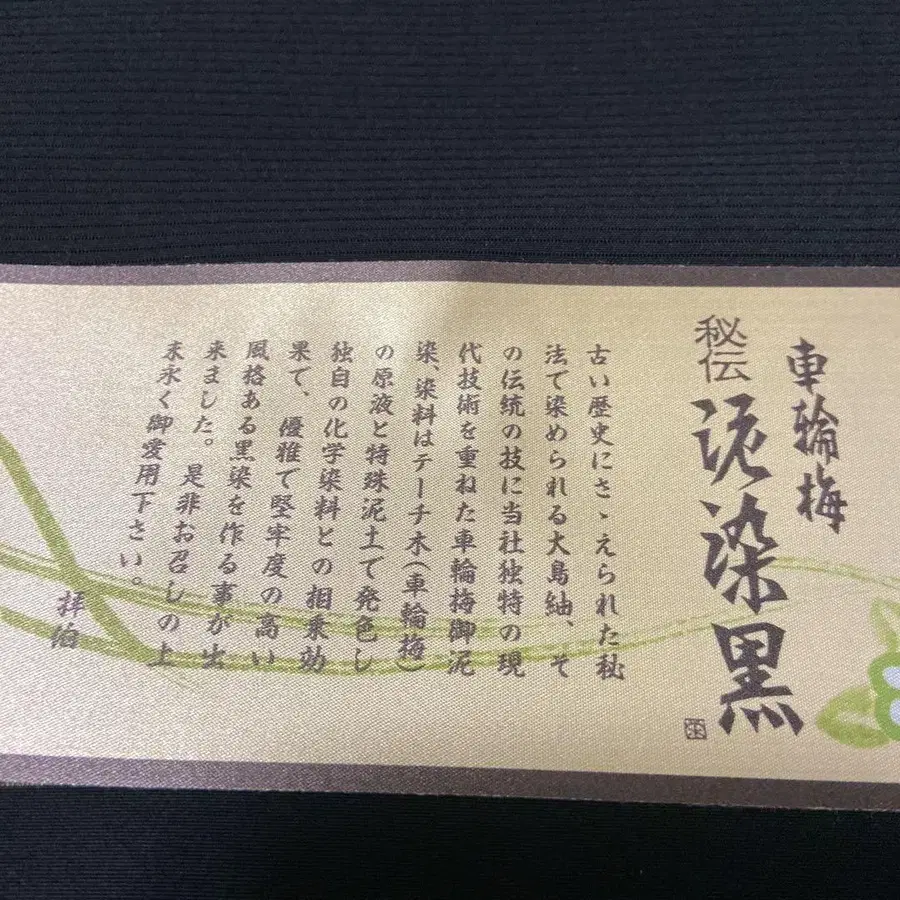 車輪梅
秘伝 泥染黒
古い歴史にさゝえられた秘
法で染められる大島紬、そ
の伝統の技に当社独特の現
代技術を重ねた車輪梅御泥
染、染料はテーチ木(車輪梅)
の原液と特殊泥土で発色し
独自の化学染料との相乗効
果で、優雅で堅牢度の高い
風格ある黒染を作る事が出
来ました。是非お召しの上
末永く御愛用下さい。
拝伯